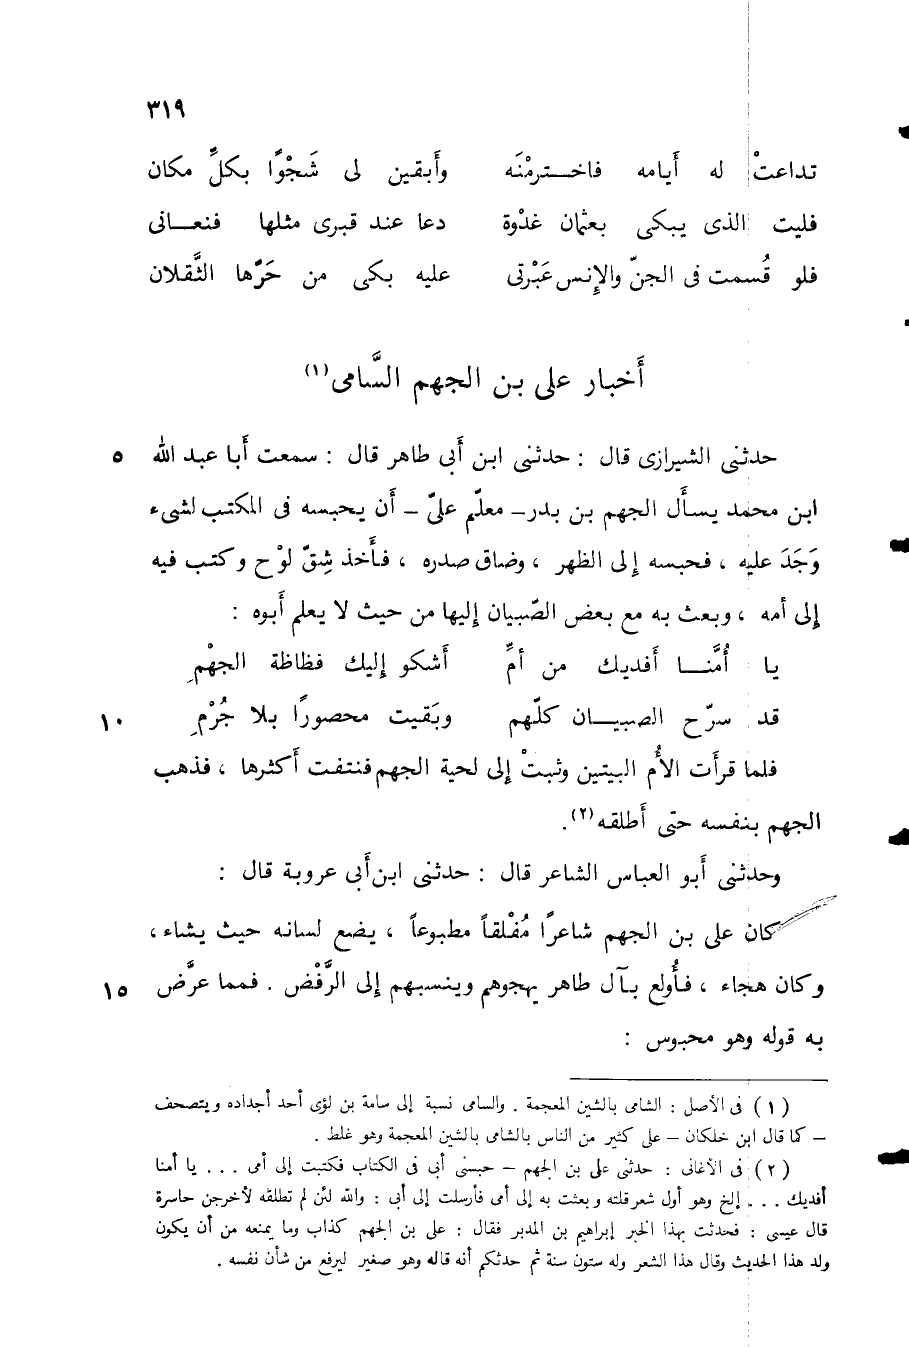 ٣١٩
تداعتْ له أَيامه فاخــترمْنَه وأَبقين لى شَجْوًا بكلِّ مكان
فليت الذى يبكى بعثمان غدْوة دعا عند قبرى مثلها فنعــانى
فلو قُسمت فى الجنّ والإنس عَبْرتى عليه بكى من حَرّها الثَّقلان
أَخبار على بن الجهم السَّامى(١)
حدثنى الشيرازى قال : حدثنى ابن أَبى طاهر قال : سمعت أَبا عبد الله ٥
ابن محمد يسأَل الجهم بن بدر – معلّم علىّ – أَن يحبسه فى المكتب لشىء
وَجَدَ عليه ، فحبسه إِلى الظهر ، وضاق صدره ، فأَخذ شِقّ لوْح وكتب فيه
إِلى أمه ، وبعث به مع بعض الصّبيان إِليها من حيث لا يعلم أَبوه :
يا أُمَّنــا أَفديك من أمٍّ أَشكو إِليك فظاظة الجهْمِ
قد سرّح الصبيــان كلّهم وبَقيت محصورًا بلا جُرْمِ ١٠
فلما قرأَت الأُم البيتين وثبتْ إِلى لحية الجهم فنتفت أَكثرها ، فذهب
الجهم بنفسه حتى أَطلقه(٢).
وحدثنى أَبو العباس الشاعر قال : حدثنى ابن أَبى عروبة قال :
كان على بن الجهم شاعرًا مُفْلقاً مطبوعاً ، يضع لسانه حيث يشاء ،
وكان هجاء ، فأُولع بآل طاهر يهجوهم وينسبهم إِلى الرَّفْض . فمما عرَّض ١٥
به قوله وهو محبوس :
(١) فى الأصل : الشامى بالشين المعجمة . والسامى نسبة إلى سامة بن لؤى أحد أجداده ويتصحف
– كما قال ابن خلكان – على كثير من الناس بالشامى بالشين المعجمة وهو غلط .
(٢) فى الأغانى : حدثنى على بن الجهم – حبسنى أبى فى الكتاب فكتبت إلى أمى ... يا أمنا
أفديك ... إلخ وهو أول شعر قلته وبعثت به إلى أمى فأرسلت إلى أبى : والله لئن لم تطلقه لأخرجن حاسرة
قال عيسى : فحدثت بهذا الخبر إبراهيم بن المدبر فقال : على بن الجهم كذاب وما يمنعه من أن يكون
ولد هذا الحديث وقال هذا الشعر وله ستون سنة ثم حدثكم أنه قاله وهو صغير ليرفع من شأن نفسه .